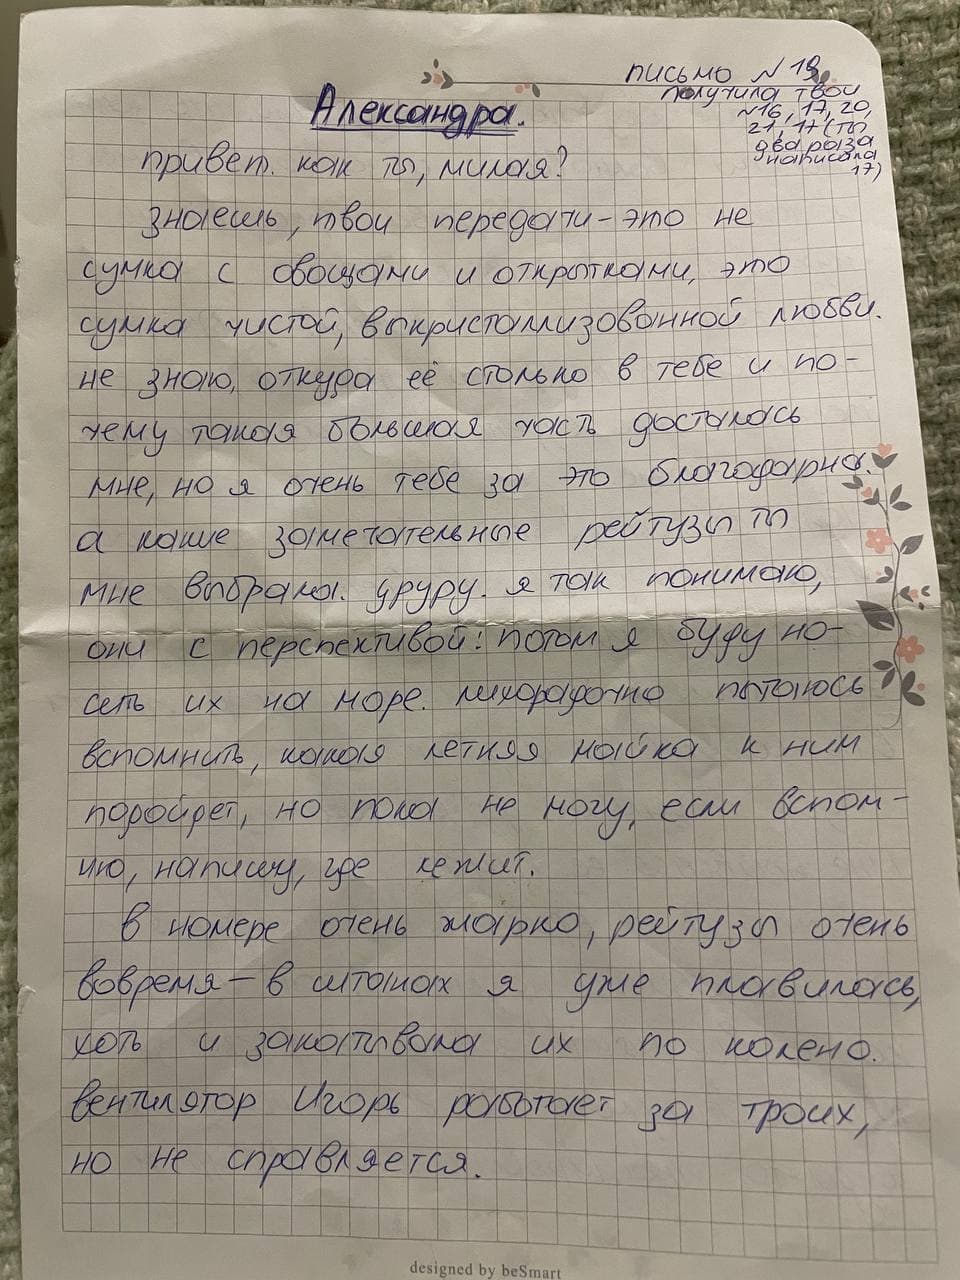 письмо №19
получила твои
№16, 17, 20,
21, 17 (ты
два раза
написала
17)
Александра.
привет. как ты, милая?
знаешь, твои передачи – это не
сумка с овощами и открытками, это
сумка чистой, выкристаллизованной любви.
не знаю, откуда её столько в тебе и по-
чему такая большая часть досталась
мне, но я очень тебе за это благодарна.
а какие замечательные рейтузы ты
мне выбрала. уруру. я так понимаю,
они с перспективой: потом я буду но-
сить их на море. лихорадочно пытаюсь
вспомнить, какая летняя майка к ним
подойдет, но пока не могу, если вспом-
ню, напишу, где лежит.
в номере очень жарко, рейтузы очень
вовремя – в штанах я уже плавилась,
хоть и закатывала их по колено.
вентилятор Игорь работает за троих,
но не справляется.
designed by beSmart